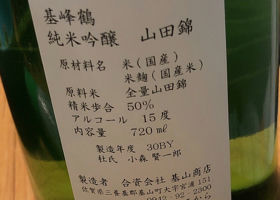 基峰鶴
純米吟醸 山田錦
原材料名 米(国産)
米麹(国産米)
原料米 全量山田錦
精米歩合 50%
アルコール 15度
内容量 720ml
製造年度 30BY
杜氏 小森 賢一郎
製造者 合資会社 基山商店
佐賀県三養基郡基山町大字宮浦151
0942-92-2300